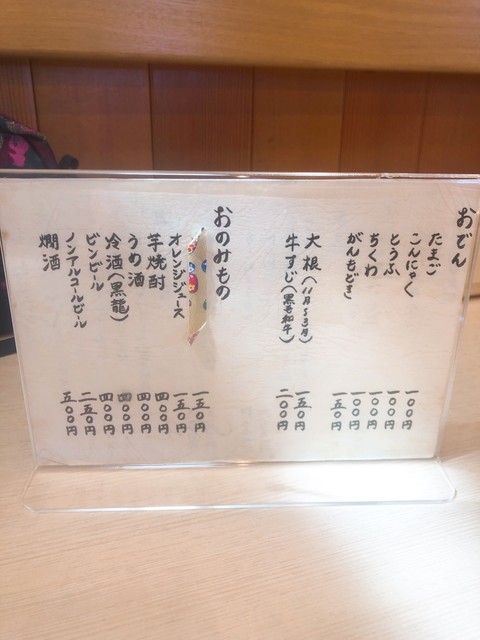 おでん
たまご 一〇〇円
こんにゃく 一〇〇円
とうふ 一〇〇円
ちくわ 一〇〇円
がんもどき 一五〇円
大根(11月〜3月) 一五〇円
牛すじ(黒毛和牛) 二〇〇円
おのみもの
一五〇円
オレンジジュース 一五〇円
芋焼酎 四〇〇円
うめ酒 四〇〇円
冷酒(黒龍) 四〇〇円
ビンビール 四〇〇円
ノンアルコールビール 二五〇円
燗酒 五〇〇円